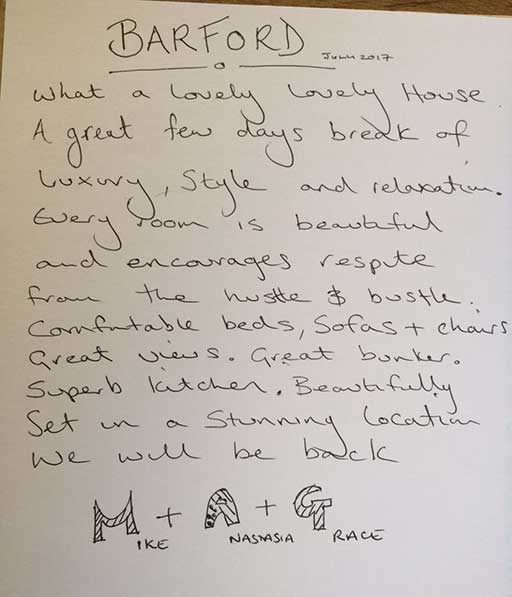 BARFORD July 2017
What a lovely lovely House.
A great few days break of
luxury, Style and relaxation.
Every room is beautiful
and encourages respite
from the hustle & bustle.
Comfortable beds, Sofas + chairs
Great views. Great bunker.
Superb kitchen. Beautifully
Set in a Stunning location
We will be back
MIKE + ANASTASIA + GRACE